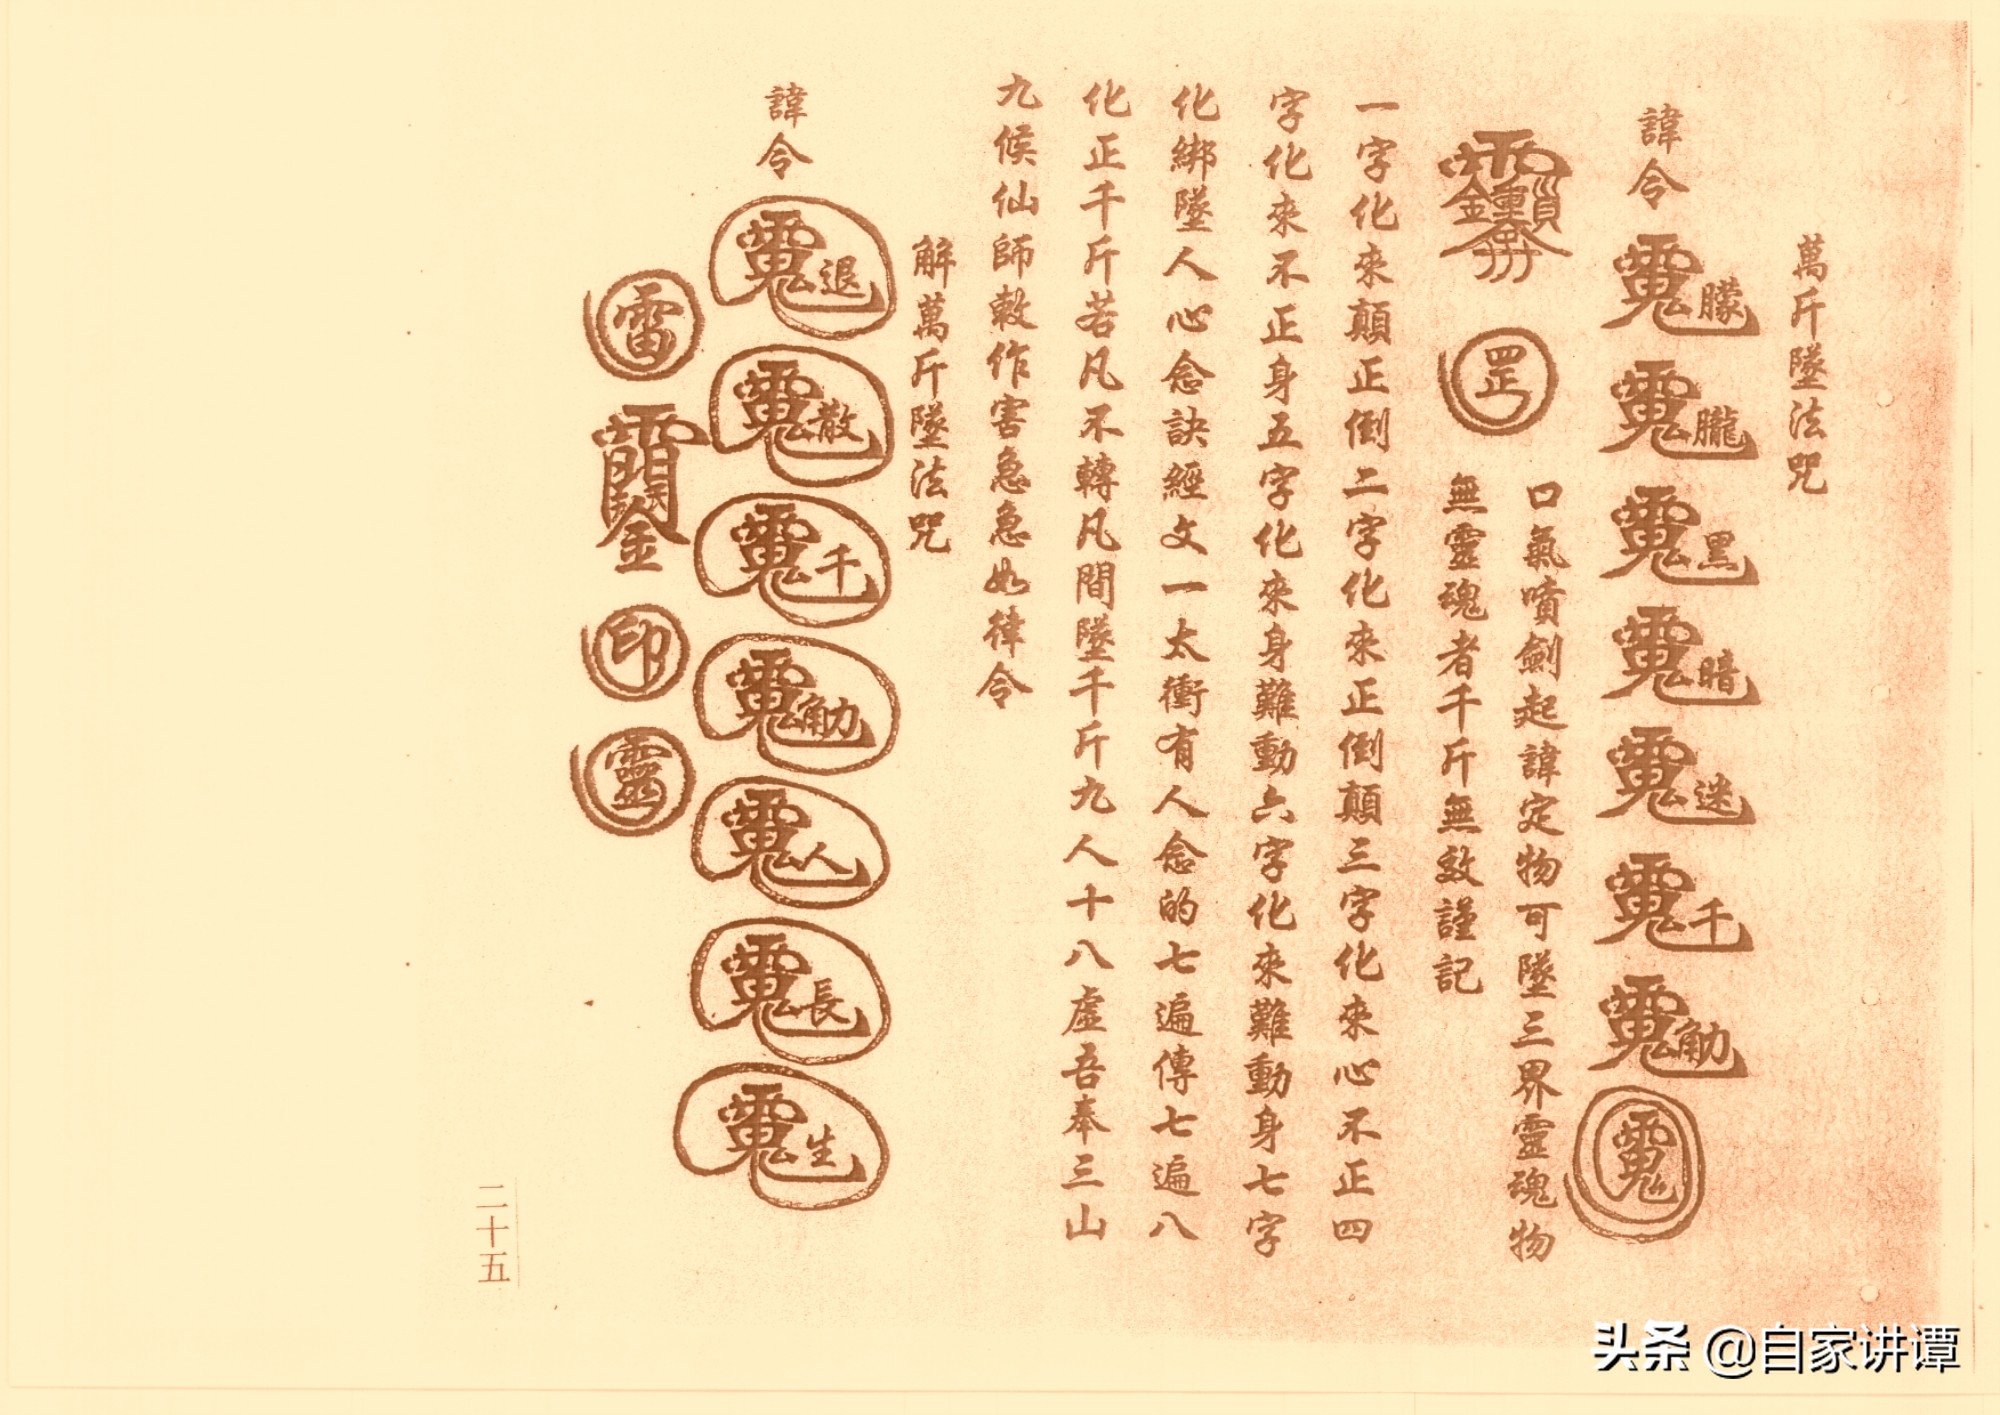 萬斤墜法咒
諱令
朦
朧
黑
暗
迷
千
觔
口氣噴劍起諱定物可墜三界靈魂物
罡
無靈魂者千斤無效謹記
一字化來顛正倒二字化來正倒顛三字化來心不正四
字化來不正身五字化來身難動六字化來難動身七字
化綁墜人心念訣經文一太衝有人念的七遍傳七遍八
化正千斤若凡不轉凡間墜千斤九人十八虛吾奉三山
九候仙師敕作害急急如律令
解萬斤墜法咒
諱令
退
散
千
觔
人
長
生
雷
印
靈
二十五
头条 @自家讲谭